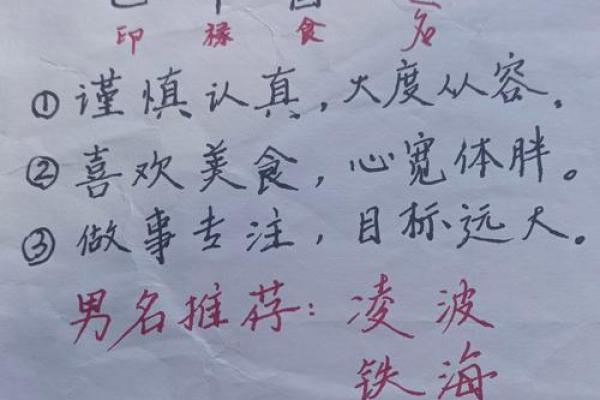 印 禄 食 名
①谨慎认真，大度从容。
②喜欢美食，心宽体胖。
③做事专注，目标远大。
男名推荐：凌波
铁海